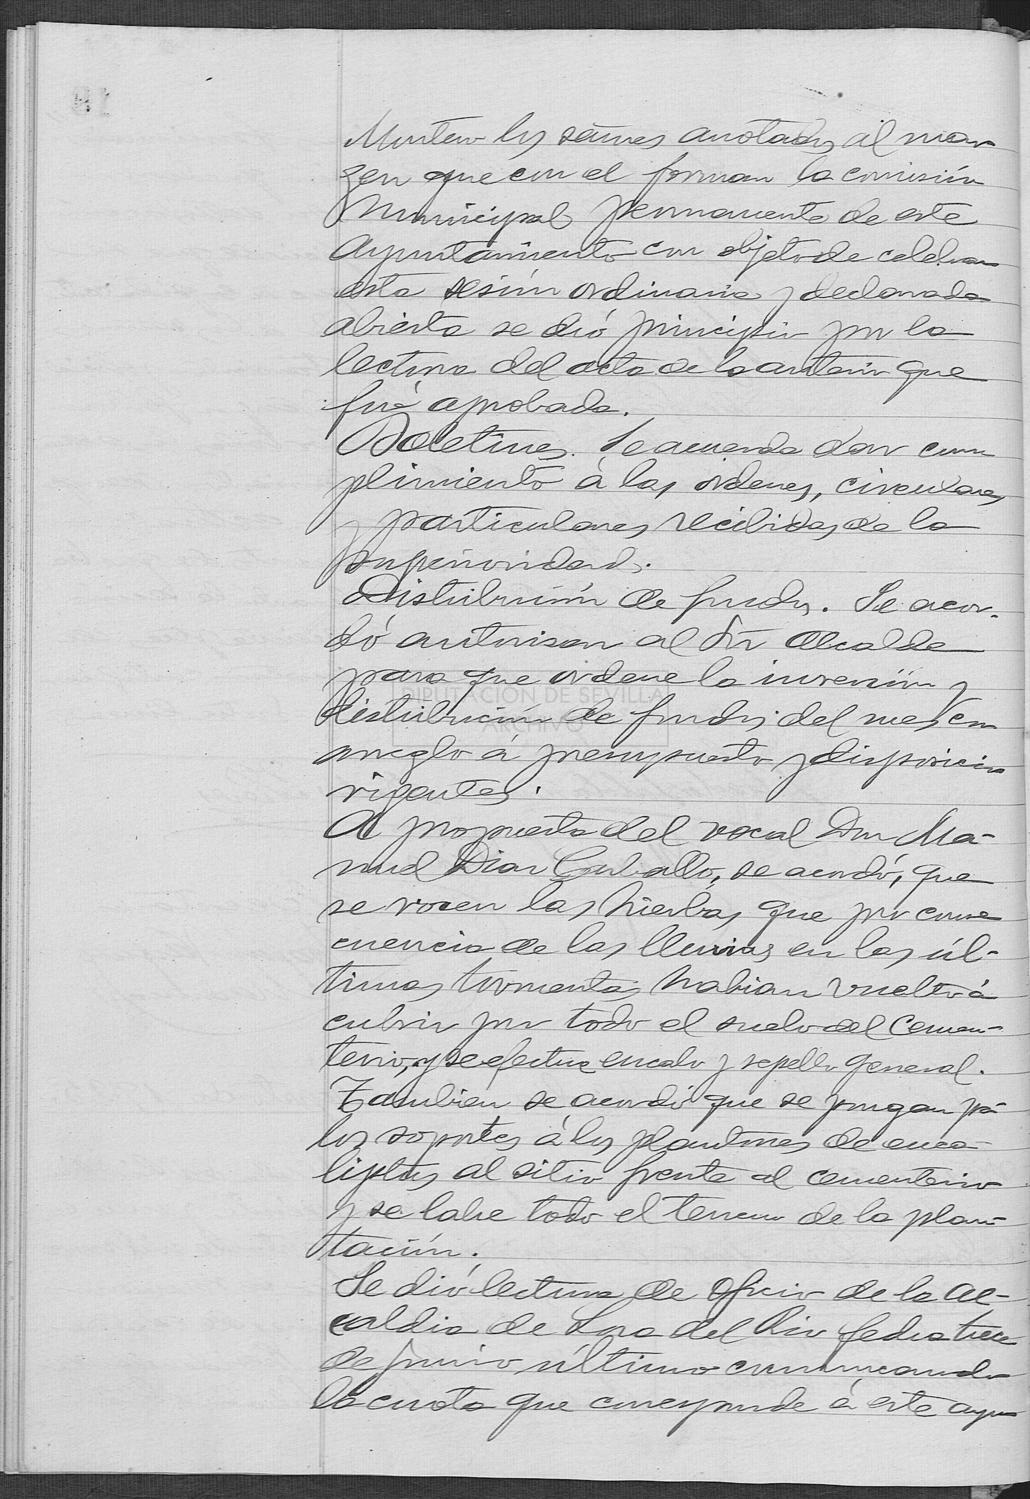 los señores anotados al mar
gen que con el forman la comisión
Municipal permanente de este
Ayuntamiento con objeto de celebrar
esta sesión ordinaria y declarada
abierta se dió principio por la
lectura del acta de la anterior que
fué aprobada.
Boletines. Se acuerda dar cum
plimiento á las ordenes, circulares
y particulares recibidas de la
superioridad.
Distribución de fondos. Se acor-
dó autorisar al Sr Alcalde
para que ordene la inversión y
distribución de fondos del mes con
arreglo á presupuesto y disposicion
vigentes.
A propuesta del vocal Don Ma-
nuel Diaz Carballo, se acordó, que
se rocen las hierbas, que por conse
cuencia de las lluvias en las úl-
timas tormentas habian vuelto á
cubrir por todo el suelo del Cemen-
terio, y se efectue encalo y repello general.
Tambien se acordó que se pongan pa
los soportes á los plantones de euca-
liptus al sitio frente al cementerio
y se labre todo el terreno de la plan-
tación.
Se dió lectura de oficio de la al-
caldia de Lora del Rio fecha trece
de junio último comunicando
la cuota que corresponde á este ayun
DIPUTACIÓN DE SEVILLA
ARCHIVO